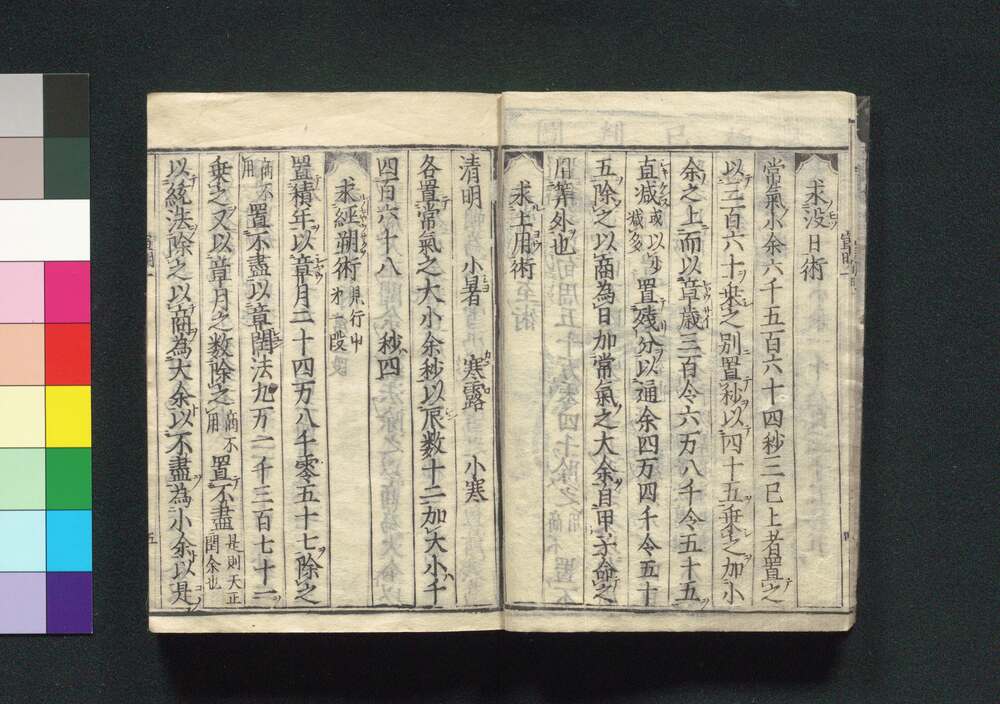 求没日術
常氣小余六千五百六十四秒三已上者置之
以三百六十乗之別置秒以四十五乗之加小
余之上而以章歳三百令六万八千令五十五
直减或以少减多置残分以通余四万四千令五十
五除之以商為日加常氣之大余自甲子命之
用筭外也
求土用術
清明 小暑 寒露 小寒
各置常氣之大小余秒以辰数十二加大小千
四百六十八 秒四
求經朔術 見行中
置積年以章月二十四万八千零五十七除之
商不用置不盡以章閏法九万二千三百七十二
乗之又以章月之数除之商不用置不盡是則天正閏余也
以統法除之以商為大余以不盡為小余以是
宣明一
五